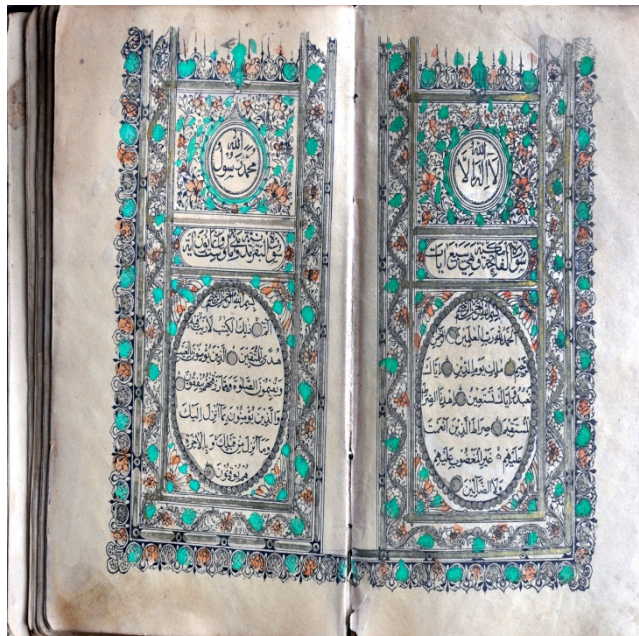 لا اله الا الله
سورة الفاتحة مكية وهي سبع ايات
بسم الله الرحمن الرحيم
الحمد لله رب العلمين الرحمن
الرحيم ملك يوم الدين اياك
نعبد واياك نستعين اهدنا الصراط
المستقيم صراط الذين انعمت
عليهم غير المغضوب عليهم
ولا الضالين
محمد رسول الله
سورة البقرة
بسم الله الرحمن الرحيم
الم ذلك الكتب لا ريب فيه
هدى للمتقين الذين يؤمنون بالغيب
ويقيمون الصلوة ومما رزقنهم ينفقون
والذين يؤمنون بما انزل اليك
وما انزل من قبلك وبالاخرة
هم يوقنون